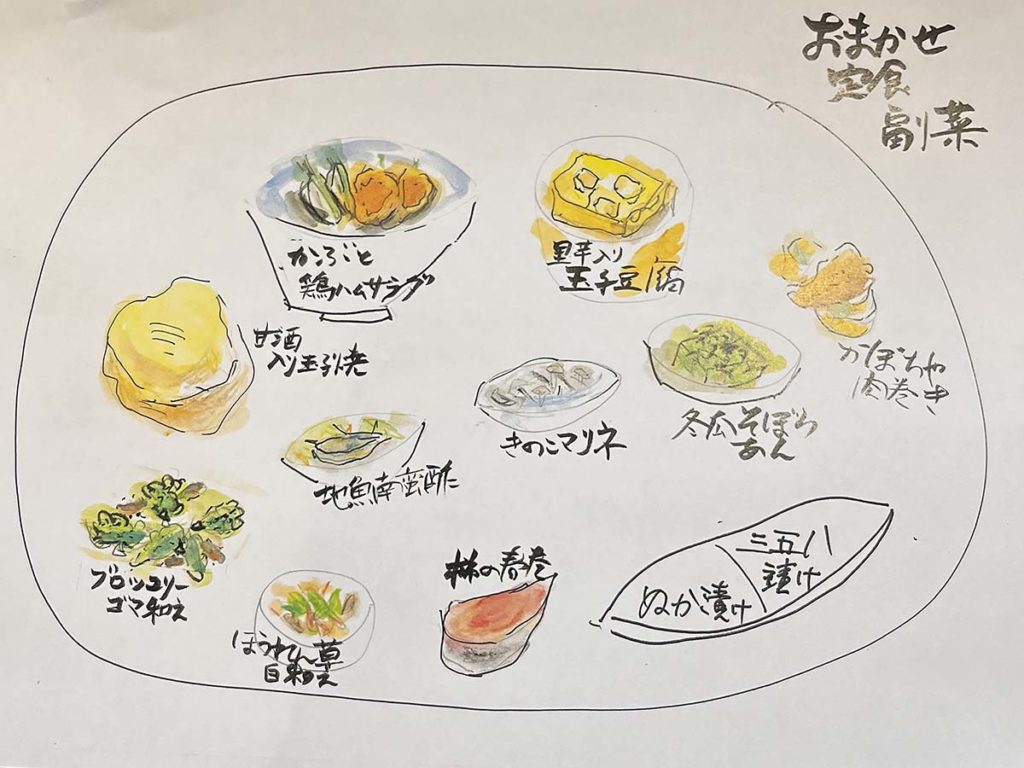 おまかせ
定食
副菜
かぶと
鶏ハムサラダ
里芋入り
玉子豆腐
かぼちゃ
肉巻き
甘酒
入り玉子焼
きのこマリネ
冬瓜そぼろ
あん
地魚南蛮酢に
ブロッコリー
ゴマ和え
ほうれん草
白和え
の春巻
三五八
漬け
ぬか漬け